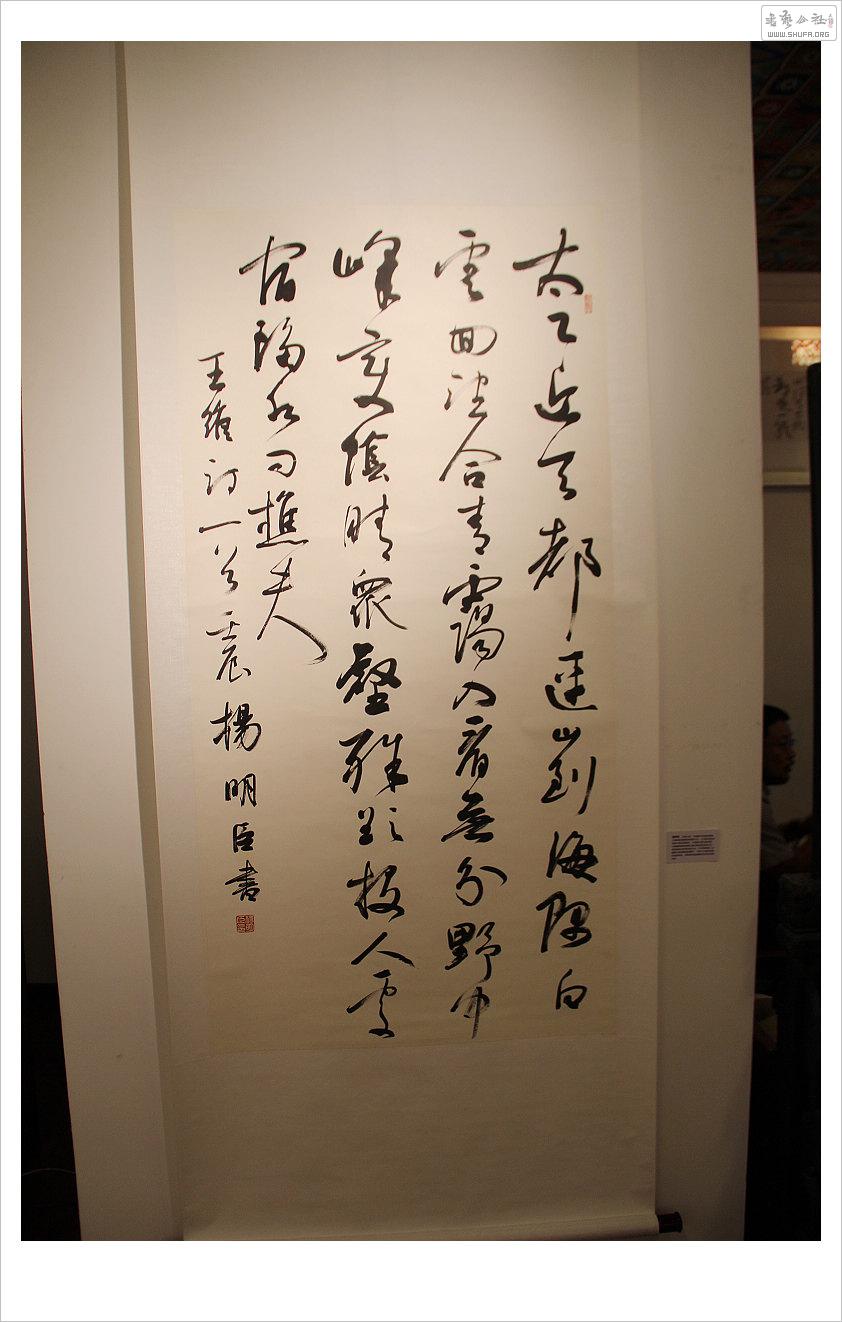 太乙近天都連山到海隅白
雲回望合青靄入看無分野中
峰變陰晴眾壑殊欲投人處
宿隔水問樵夫
王維詩一首壬辰楊明臣書
书艺公社
WWW.SHUFA.ORG